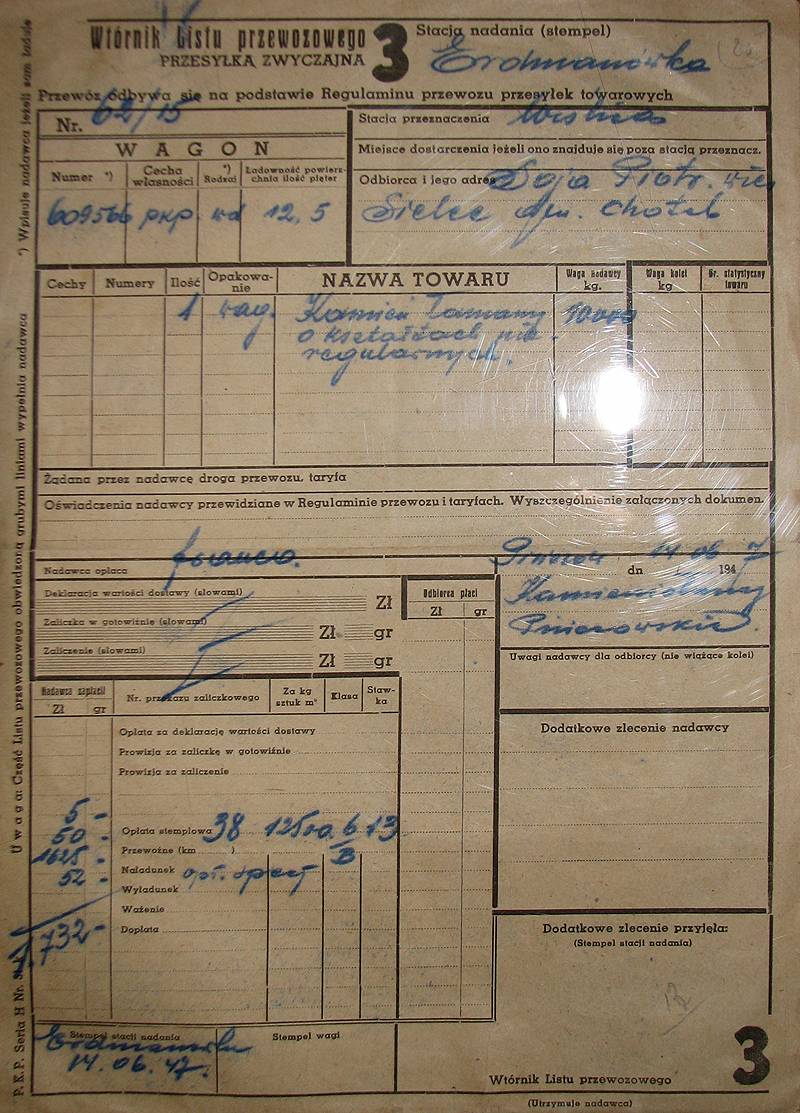 Wtórnik Listu przewozowego 3
PRZESYŁKA ZWYCZAJNA
Stacja nadania (stempel)
Erdmanówka
Przewóz odbywa się na podstawie Regulaminu przewozu przesyłek towarowych
Nr. 62/15
WAGON
Numer *) Cecha własności *) Rodzaj Ładowność powierzchnia ilość pięter
609566 pkp. wd 12,5
Stacja przeznaczenia
Miejsce dostarczenia jeżeli ono znajduje się poza stacją przeznacz.
Odbiorca i jego adres Soja Piotr. wieś
Sielec Chotel
Cechy Numery Ilość Opakowanie NAZWA TOWARU Waga nadawcy kg. Waga kolei kg Nr. statystyczny towaru
1 wag. Kamień łamany 10000
o kształtach nie-
regularnych.
Żądana przez nadawcę droga przewozu, taryfa
Oświadczenia nadawcy przewidziane w Regulaminie przewozu i taryfach. Wyszczególnienie załączonych dokumen.
Nadawca opłaca franco.
dn 14.06 1947
Kamieniołomy
Pińczowskie.
Deklaracja wartości dostawy (słowami) Zł
Zaliczka w gotowiźnie (słowami) Zł gr
Zaliczenie (słowami) Zł gr
Odbiorca płaci
Zł gr
Uwagi nadawcy dla odbiorcy (nie wiążące kolei)
Nadawca zapłacił
Zł gr
Nr. przekazu zaliczkowego Za kg sztuk m³ Klasa Stawka
Dodatkowe zlecenie nadawcy
Opłata za deklarację wartości dostawy
Prowizja za zaliczkę w gotowiźnie
Prowizja za zaliczenie
5-
50- Opłata stemplowa 38 125 6 13
1625- Przewoźne (km ) B
52- Naładunek opł.
Wyładunek
Ważenie
1732- Dopłata
Dodatkowe zlecenie przyjęła:
(Stempel stacji nadania)
Stempel stacji nadania
Erdmanówka
14.06.47.
Stempel wagi
Wtórnik Listu przewozowego 3
(Utrzymuje nadawca)
*) Wpisuje nadawca jeżeli sam ładuje
Uwaga: Część Listu przewozowego obwiedzioną grubymi liniami wypełnia nadawca
P.K.P. Seria H Nr.